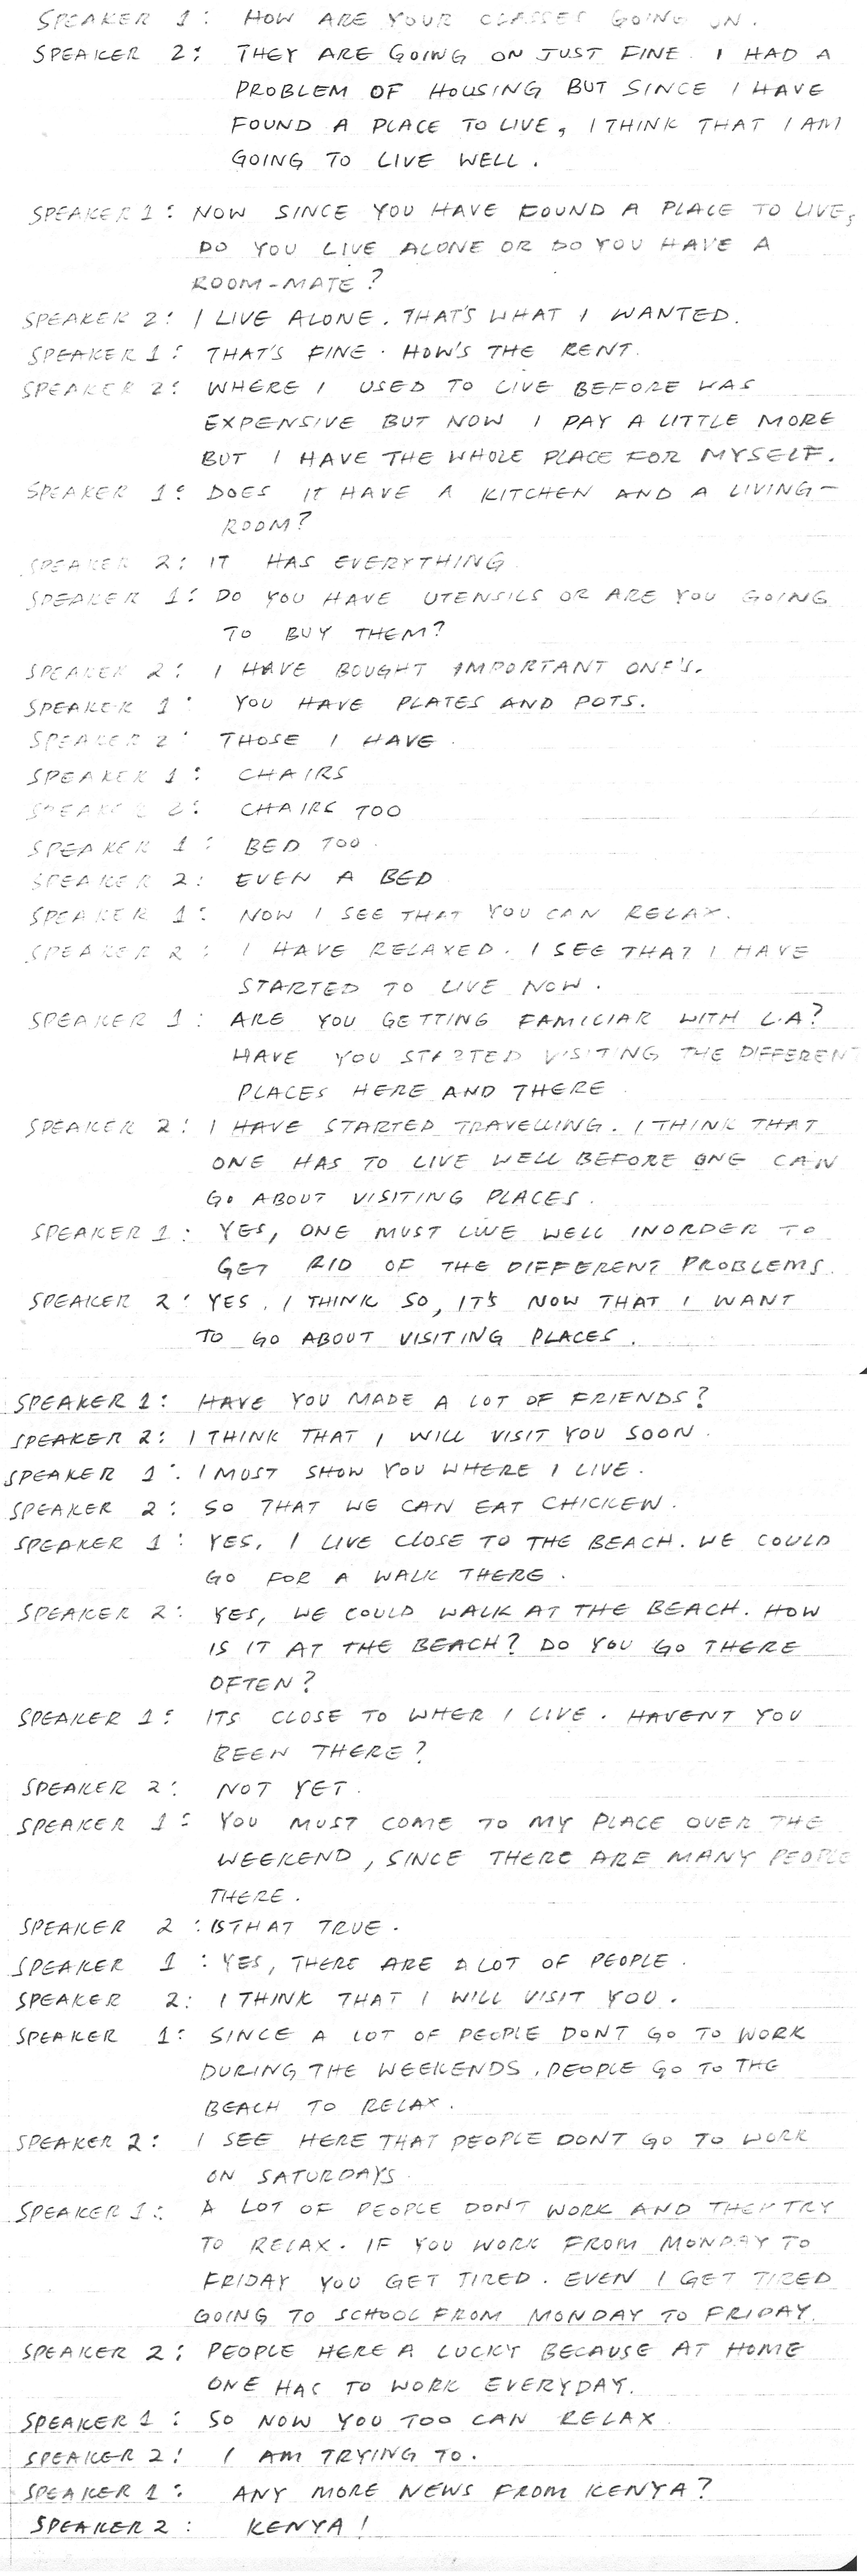 SPEAKER 1: HOW ARE YOUR CLASSES GOING ON.
SPEAKER 2: THEY ARE GOING ON JUST FINE. I HAD A
PROBLEM OF HOUSING BUT SINCE I HAVE
FOUND A PLACE TO LIVE, I THINK THAT I AM
GOING TO LIVE WELL.
SPEAKER 1: NOW SINCE YOU HAVE FOUND A PLACE TO LIVE,
DO YOU LIVE ALONE OR DO YOU HAVE A
ROOM-MATE?
SPEAKER 2: I LIVE ALONE. THAT'S WHAT I WANTED.
SPEAKER 1: THAT'S FINE. HOW'S THE RENT.
SPEAKER 2: WHERE I USED TO LIVE BEFORE WAS
EXPENSIVE BUT NOW I PAY A LITTLE MORE
BUT I HAVE THE WHOLE PLACE FOR MYSELF.
SPEAKER 1: DOES IT HAVE A KITCHEN AND A LIVING-
ROOM?
SPEAKER 2: IT HAS EVERYTHING
SPEAKER 1: DO YOU HAVE UTENSILS OR ARE YOU GOING
TO BUY THEM?
SPEAKER 2: I HAVE BOUGHT IMPORTANT ONE'S.
SPEAKER 1: YOU HAVE PLATES AND POTS.
SPEAKER 2: THOSE I HAVE.
SPEAKER 1: CHAIRS
SPEAKER 2: CHAIRS TOO
SPEAKER 1: BED TOO.
SPEAKER 2: EVEN A BED
SPEAKER 1: NOW I SEE THAT YOU CAN RELAX.
SPEAKER 2: I HAVE RELAXED. I SEE THAT I HAVE
STARTED TO LIVE NOW.
SPEAKER 1: ARE YOU GETTING FAMILIAR WITH L.A?
HAVE YOU STARTED VISITING THE DIFFERENT
PLACES HERE AND THERE.
SPEAKER 2: I HAVE STARTED TRAVELLING. I THINK THAT
ONE HAS TO LIVE WELL BEFORE ONE CAN
GO ABOUT VISITING PLACES.
SPEAKER 1: YES, ONE MUST LIVE WELL INORDER TO
GET RID OF THE DIFFERENT PROBLEMS.
SPEAKER 2: YES. I THINK SO, IT'S NOW THAT I WANT
TO GO ABOUT VISITING PLACES.
SPEAKER 1: HAVE YOU MADE A LOT OF FRIENDS?
SPEAKER 2: I THINK THAT I WILL VISIT YOU SOON.
SPEAKER 1: I MUST SHOW YOU WHERE I LIVE.
SPEAKER 2: SO THAT WE CAN EAT CHICKEN.
SPEAKER 1: YES, I LIVE CLOSE TO THE BEACH. WE COULD
GO FOR A WALK THERE.
SPEAKER 2: YES, WE COULD WALK AT THE BEACH. HOW
IS IT AT THE BEACH? DO YOU GO THERE
OFTEN?
SPEAKER 1: ITS CLOSE TO WHER I LIVE. HAVENT YOU
BEEN THERE?
SPEAKER 2: NOT YET.
SPEAKER 1: YOU MUST COME TO MY PLACE OVER THE
WEEKEND, SINCE THERE ARE MANY PEOPLE
THERE.
SPEAKER 2: IS THAT TRUE.
SPEAKER 1: YES, THERE ARE A LOT OF PEOPLE.
SPEAKER 2: I THINK THAT I WILL VISIT YOU.
SPEAKER 1: SINCE A LOT OF PEOPLE DONT GO TO WORK
DURING THE WEEKENDS, PEOPLE GO TO THE
BEACH TO RELAX.
SPEAKER 2: I SEE HERE THAT PEOPLE DONT GO TO WORK
ON SATURDAYS.
SPEAKER 1: A LOT OF PEOPLE DON'T WORK AND THEY TRY
TO RELAX. IF YOU WORK FROM MONDAY TO
FRIDAY YOU GET TIRED. EVEN I GET TIRED
GOING TO SCHOOL FROM MONDAY TO FRIDAY.
SPEAKER 2: PEOPLE HERE A LUCKY BECAUSE AT HOME
ONE HAS TO WORK EVERYDAY.
SPEAKER 1: SO NOW YOU TOO CAN RELAX
SPEAKER 2: I AM TRYING TO.
SPEAKER 1: ANY MORE NEWS FROM KENYA?
SPEAKER 2: KENYA!